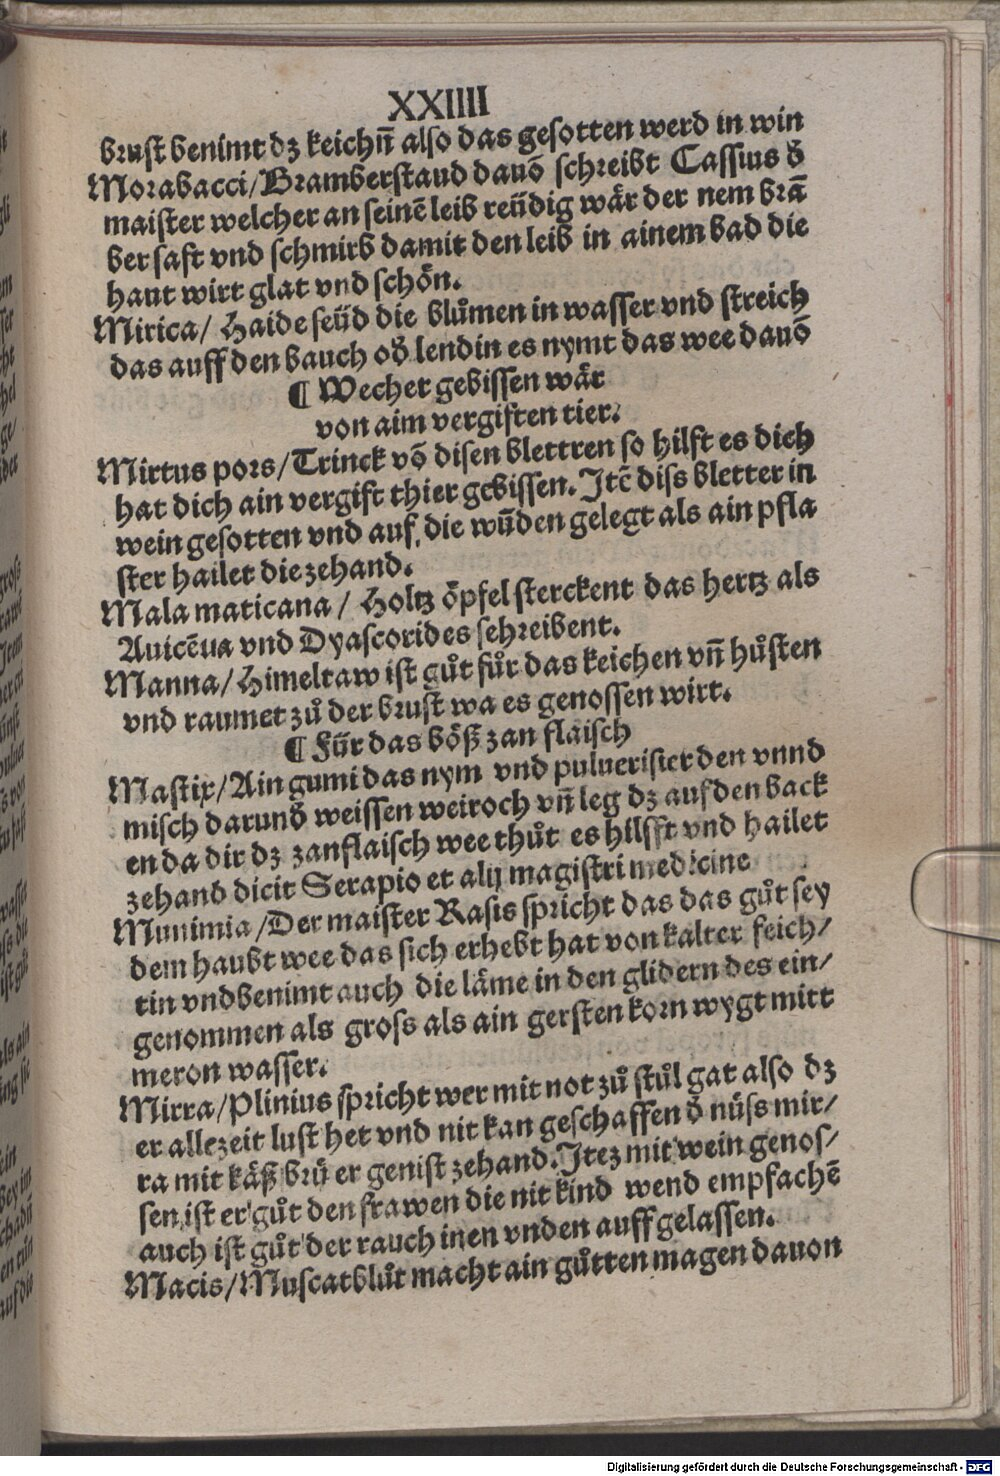 XXIIII
brust benimt dz keichn̄ also das gesotten werd in win
Morabacci/Bramberstaud dauō schreibt Cassius d̄
maister welcher an seinē leib reüdig wär der nem brā
ber saft vnd schmirb damit den leib in ainem bad die
haut wirt glat vnd schön.
Mirica/ Haide seüd die blůmen in wasser vnd streich
das auff den bauch od̄ lendin es nymt das wee dauō
¶ Wecher gebissen wär
von aim vergiften tier.
Mirtus pors/Trinck vō disen blettren so hilft es dich
hat dich ain vergift thier gebissen. Itē diss bletter in
wein gesotten vnd auf die wūden gelegt als ain pfla
ster hailet die zehand.
Mala maticana / Holtz öpfel sterckent das hertz als
Auicēua vnd Dyascorides sehreibent.
Manna/Himeltaw ist gůt für das keichen vn̄ hůsten
vnd raumet zů der brust wa es genossen wirt.
¶ Für das böß zan flaisch
Mastix/Ain gumi das nym vnd puluerisier den vnnd
misch darund̄ weissen weiroch vn̄ leg dz auf den back
en da dir dz zanflaisch wee thůt es hilfft vnd hailet
zehand dicit Serapio et alij magistri medicine
Munimia /Der maister Rasis spricht das das gůt sey
dem haubt wee das sich erhebt hat von kalter feich/
tin vnd benimt auch die läme in den glidern des ein/
genommen als gross als ain gersten korn wygt mitt
meron wasser.
Mirra/Plinius spricht wer mit not zů stůl gat also dz
er allezeit lust het vnd nit kan geschaffen d̄ nüss mir/
ra mit käß brü er genist zehand. Itez mit wein genos/
sen ist er gůt den frawen die nit kind wend empfachē
auch ist gůt der rauch inen vnden auff gelassen.
Macis/Muscatblůt macht ain gůtten magen dauon
Digitalisierung gefördert durch die Deutsche Forschungsgemeinschaft - DFG